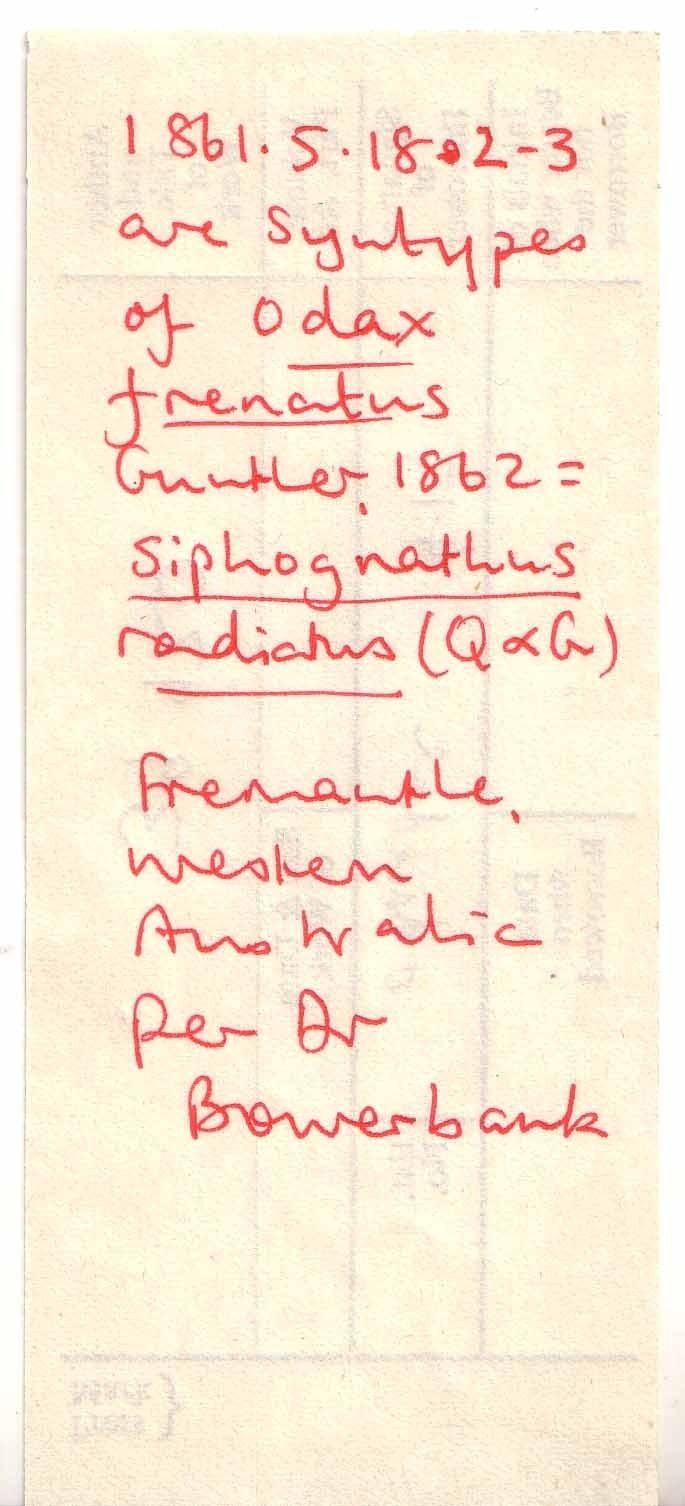 1861.5.18.2-3
are Syntypes
of Odax
frenatus
Gunther, 1862 =
Siphognathus
radiatus (Q & G)
Fremantle,
Western
Australia
per Dr
Bowerbank